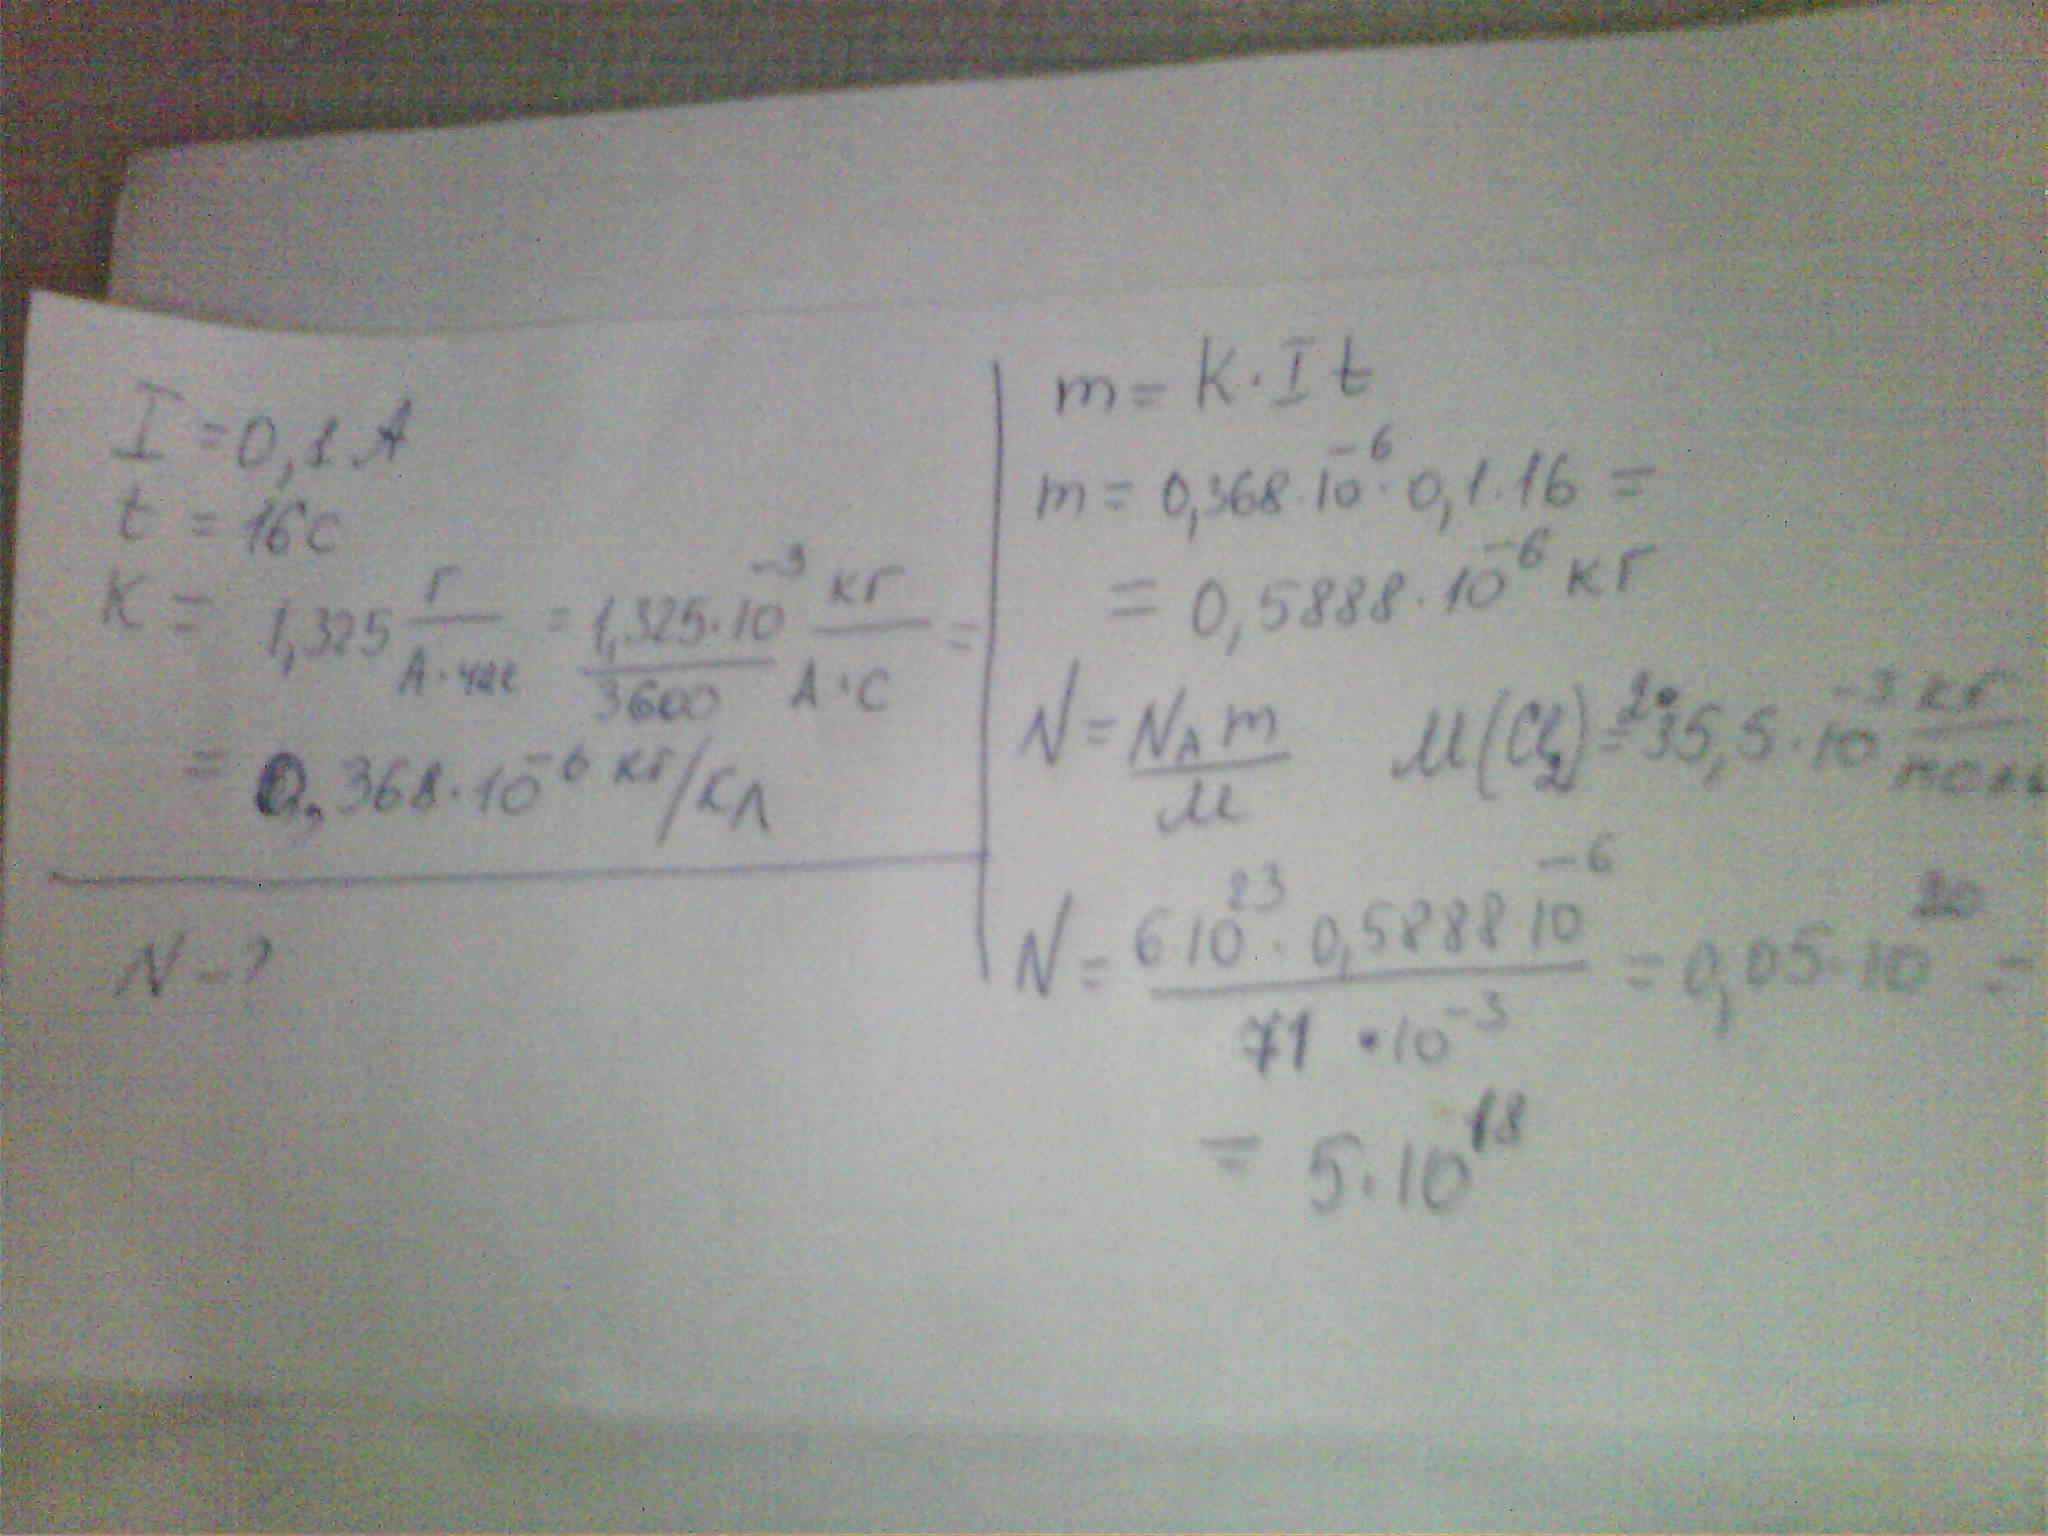 I = 0,1 А
t = 16 с
K = 1,325 г/А·час = 1,325·10⁻³/3600 кг/А·с =
= 0,368·10⁻⁶ кг/Кл
N – ?
m = K·I t
m = 0,368·10⁻⁶·0,1·16 =
= 0,5888·10⁻⁶ кг
N = N_A m/M   M(Cl₂) = 2·35,5·10⁻³ кг/моль
N = 6 10²³·0,5888 10⁻⁶/71·10⁻³ = 0,05·10²⁰ =
= 5·10¹⁸